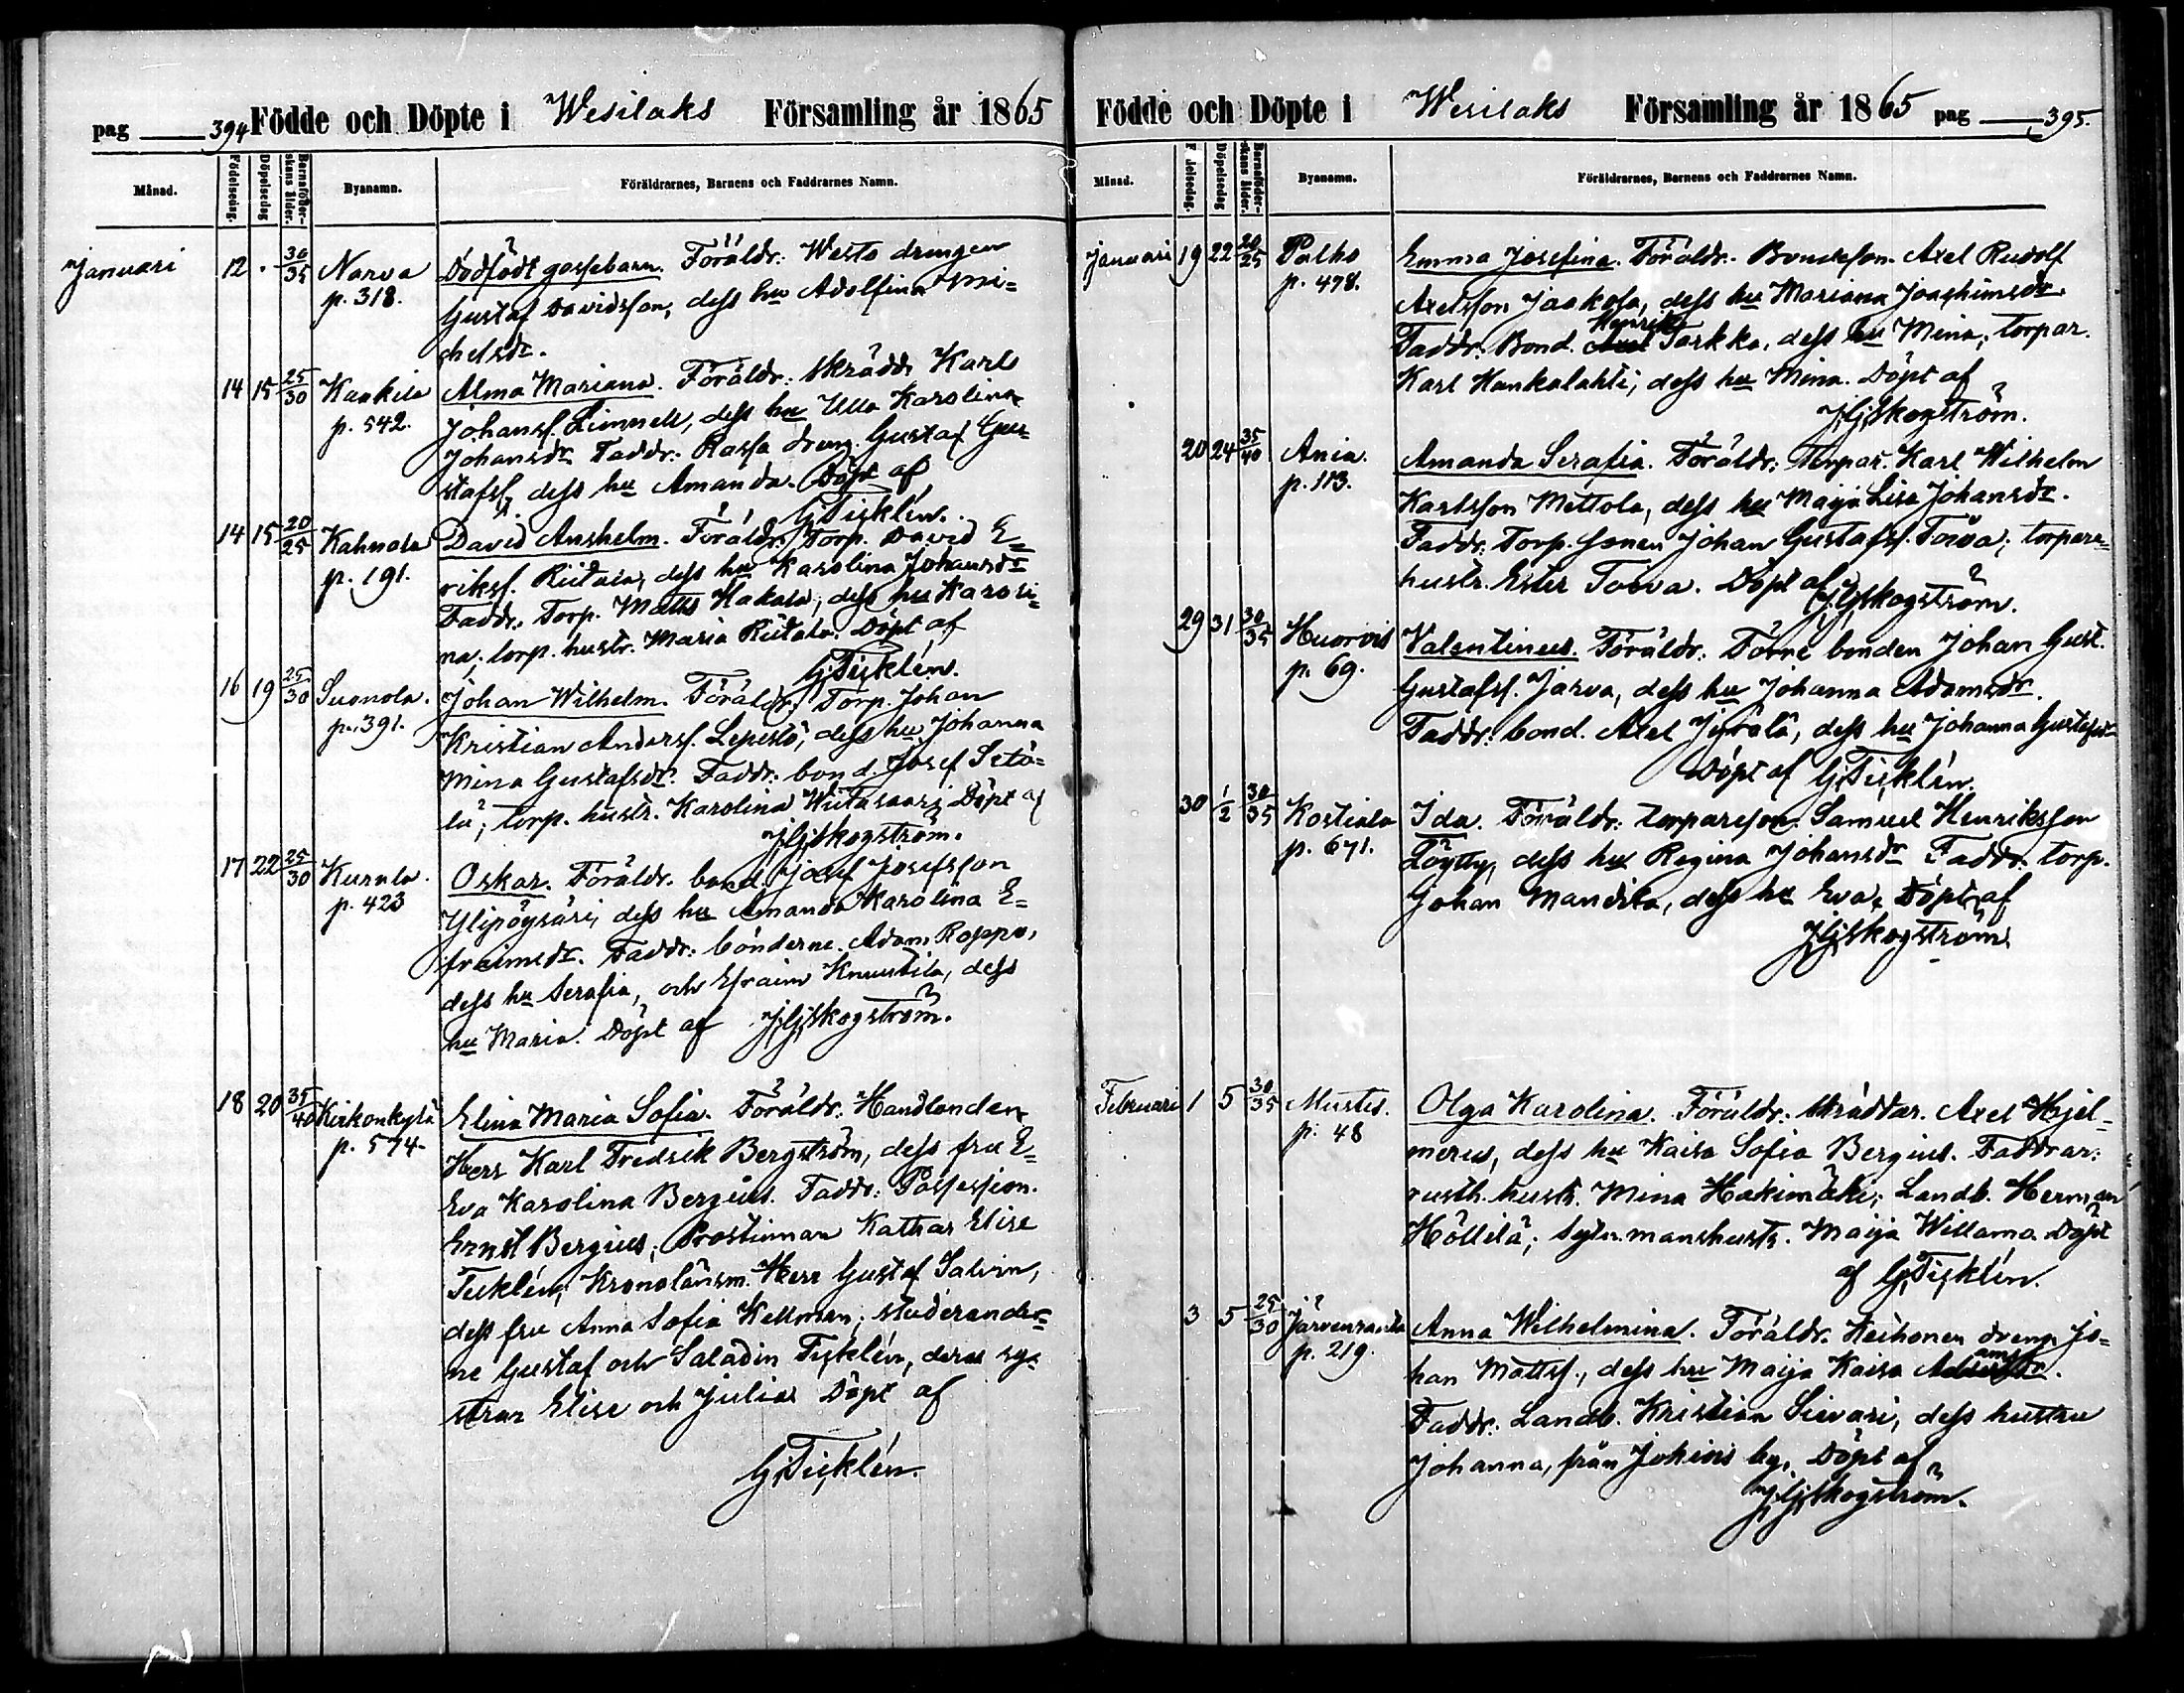 pag 394 Födde och Döpte i Wesilaks Församling år 1865
Månad. Födelsedag. Döpelsedag Barnaföderskans ålder. Byanamn. Föräldrarnes, Barnens och Faddrarnes Namn.
Januari 12 . 30/35 Narva Dödfödt gossebarn. Föräldr: Westo drengen
p. 318. Gustaf Davidsson, dess hu Adolfina Mi=
chelsdr.
14 15 25/30 Kaakila Alma Mariana. Föräldr: Skrädd. Karl
p. 542. Johansf. Limnell, dess hu Ulla Karolina
Johansdr. Faddr: Rassa dreng. Gustaf Gus=
stafsf, dess hu Amanda. Döpt af
G. Ticklén.
14 15 20/25 Kahnala David Anshelm. Föräldr. Torp. David E=
p. 191. riksf. Riitala, dess hu Karolina Johansdr
Faddr. Torp. Matts Hakala, dess hu Karoli=
na; torp. hustr. Maria Riitala. Döpt af
G. Ticklén.
16 19 25/30 Suonola. Johan Wilhelm. Föräldr: Torp. Johan
p. 391. Kristian Andersf. Lepistö, dess hu Johanna
Mina Gustafsdr. Faddr: bond. Josef Setä=
lä; torp. hustr. Karolina Wiitasaari Döpt af
J.G. Skogström.
17 22 25/30 Kurala. Oskar. Föräldr. bond. Josef Josefsson
p. 423 Ylipöysäri, dess hu Amanda Karolina E=
fraimsdr. Faddr: bönderne Adam Roppo,
dess hu Serafia, och Efraim Knuutila, dess
hu Maria. Döpt af J.G. Skogström.
18 20 35/40 Kirkonkylä Elina Maria Sofia. Föräldr: Handlanden
p. 574. Herr Karl Fredrik Bergström, dess fru E=
Eva Karolina Bergius. Faddr: Possession.
Ernst Bergius; Prostinnan Kathar. Elise
Ticklén; Kronolänsm. Herr Gustaf Salvin,
dess fru Anna Sofia Kellman; studerander=
ne Gustaf och Saladin Ticklén, deras sy=
strar Elise och Julia Döpt af
G. Ticklén.
Födde och Döpte i Wesilaks Församling år 1865 pag 395.
Månad. Födelsedag. Döpelsedag Barnaföderskans ålder. Byanamn. Föräldrarnes, Barnens och Faddrarnes Namn.
Januari 19 22 20/25 Palho Emma Josefina. Föräldr. Bondeson. Axel Rudolf
p. 478. Axelsson Jaakola, dess hu Mariana Joachimsdr.
Henrik
Faddr: Bond. Tarkka, dess hu Mina; torpar.
Karl Hankalahti; dess hu Mina. Döpt af
J.G. Skogström.
20 24 35/40 Ania. Amanda Serafia. Föräldr: Torpar. Karl Wilhelm
p. 113. Karlsson Mottola, dess hu Maija Lisa Johansdr.
Faddr: Torp. sonen Johan Gustafsf. Toiva; torpare=
hustr. Ester Toiva. Döpt af J.G. Skogström.
29 31 30/35 Huorvis Valentinus. Föräldr: Förre bonden Johan Gust.
p. 69. Gustafsf. Jarva, dess hu Johanna Adamsdr.
Faddr: bond. Axel Jyrälä, dess hu Johanna Gustafsdr
Döpt af G. Ticklén.
30 1/2 30/35 Kostiala Ida. Föräldr: torpareson Samuel Henriksson
p. 671. Löytty, dess hu Regina Johansdr Faddr. torp.
Johan Mandita, dess hu Eva, Döpt af
J.G. Skogström.
Februari 1 5 30/35 Mustis. Olga Karolina. Föräldr: Skräddar. Axel Hjel=
p. 48 merus, dess hu Kaisa Sofia Bergius. Faddrar:
rusth. hustr. Mina Hakimäki; Landb. Herman
Höllilä; sytn. manshustr. Maija Willamo Döpt
af G. Ticklén.
3 5 25/30 Järvenranta Anna Wilhelmina. Föräldr. Heikonen dreng Jo=
p. 219. han Mattsf., dess hu Maija Kaisa Adamsdr.
Faddr: Landb. Kristian Sirvari, dess hustru
Johanna, från Jokiois by, Döpt af
J.G. Skogström.